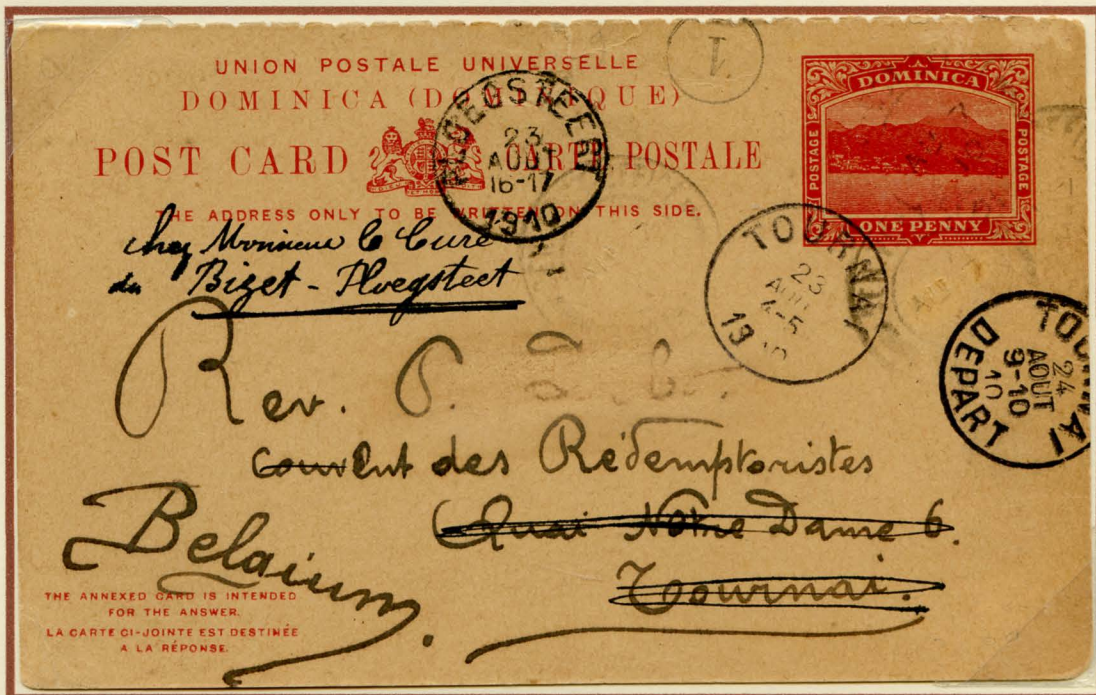 UNION POSTALE UNIVERSELLE
DOMINICA (DOMINIQUE)
POST CARD CARTE POSTALE
THE ADDRESS ONLY TO BE WRITTEN ON THIS SIDE.
T
DOMINICA
POSTAGE
POSTAGE
ONE PENNY
PLOEGSTEERT
23
AOUT
16-17
1910
chez Monsieur le Curé
du Bizet - Ploegsteet
TOURNAI
23
AOU
4-5
1910
TOURNAI
24
AOUT
9-10
10
DEPART
Rev. P.
couvent des Rédemptoristes
Quai Notre Dame 6.
Tournai.
Belgium.
THE ANNEXED CARD IS INTENDED
FOR THE ANSWER.
LA CARTE CI-JOINTE EST DESTINÉE
A LA RÉPONSE.